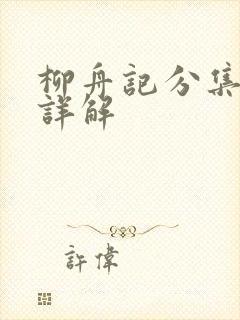 柳舟記分集
詳解
許偉